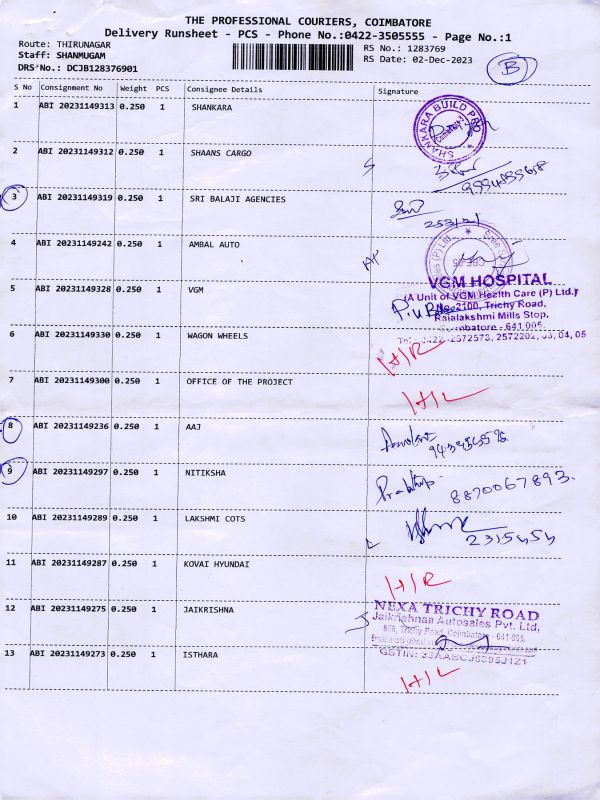 THE PROFESSIONAL COURIERS, COIMBATORE
Delivery Runsheet - PCS - Phone No.:0422-3505555 - Page No.:1
Route: THIRUNAGAR
RS No.: 1283769
Staff: SHANMUGAM
RS Date: 02-Dec-2023
DRS No.: DCJB128376901
B
S No Consignment No Weight PCS Consignee Details Signature
1 ABI 20231149313 0.250 1 SHANKARA
SHANKARA BUILD PRO
2 ABI 20231149312 0.250 1 SHAANS CARGO
3 ABI 20231149319 0.250 1 SRI BALAJI AGENCIES
4 ABI 20231149242 0.250 1 AMBAL AUTO
5 ABI 20231149328 0.250 1 VGM
VGM HOSPITAL
(A Unit of VGM Health Care (P) Ltd.)
No. 2100, Trichy Road,
Rajalakshmi Mills Stop,
Coimbatore - 641 005.
0422-2572573, 2572202, 03, 04, 05
6 ABI 20231149330 0.250 1 WAGON WHEELS
7 ABI 20231149300 0.250 1 OFFICE OF THE PROJECT
8 ABI 20231149236 0.250 1 AAJ
9 ABI 20231149297 0.250 1 NITIKSHA
8870067893.
10 ABI 20231149289 0.250 1 LAKSHMI COTS
2315454
11 ABI 20231149287 0.250 1 KOVAI HYUNDAI
12 ABI 20231149275 0.250 1 JAIKRISHNA
NEXA TRICHY ROAD
Jaikrishnaa Autosales Pvt. Ltd,
Trichy Road, Coimbatore - 641 005.
13 ABI 20231149273 0.250 1 ISTHARA